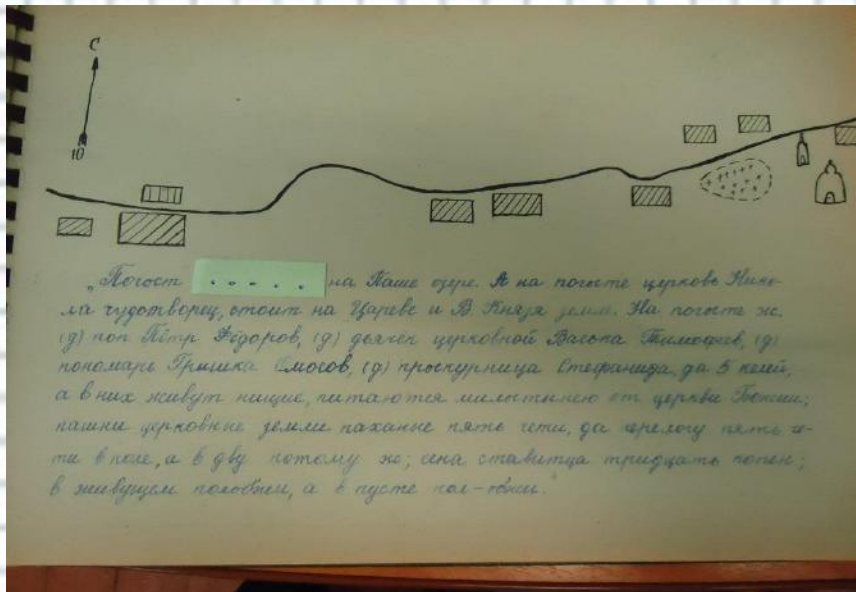 С
Ю
„Погост ..... на Паше озере. А на погосте церковь Нико-
ла чудотворец, стоит на Царево и В. Князя земле. На погосте ж.
(д) поп Пётр Фёдоров, (д) дьячек церковной Васька Тимофеев, (д)
пономарь Гришка Омосов, (д) проскурница Стефанида, да 5 келей,
а в них живут нищие, питаются милостынею от церкви Божии;
пашни церковные земли паханые пять чети, да перелогу пять че-
ти в поле, а в дву потому ж; сена ставитца тридцать копен;
в живущем пол-обжи, а в пусте пол-обжи.